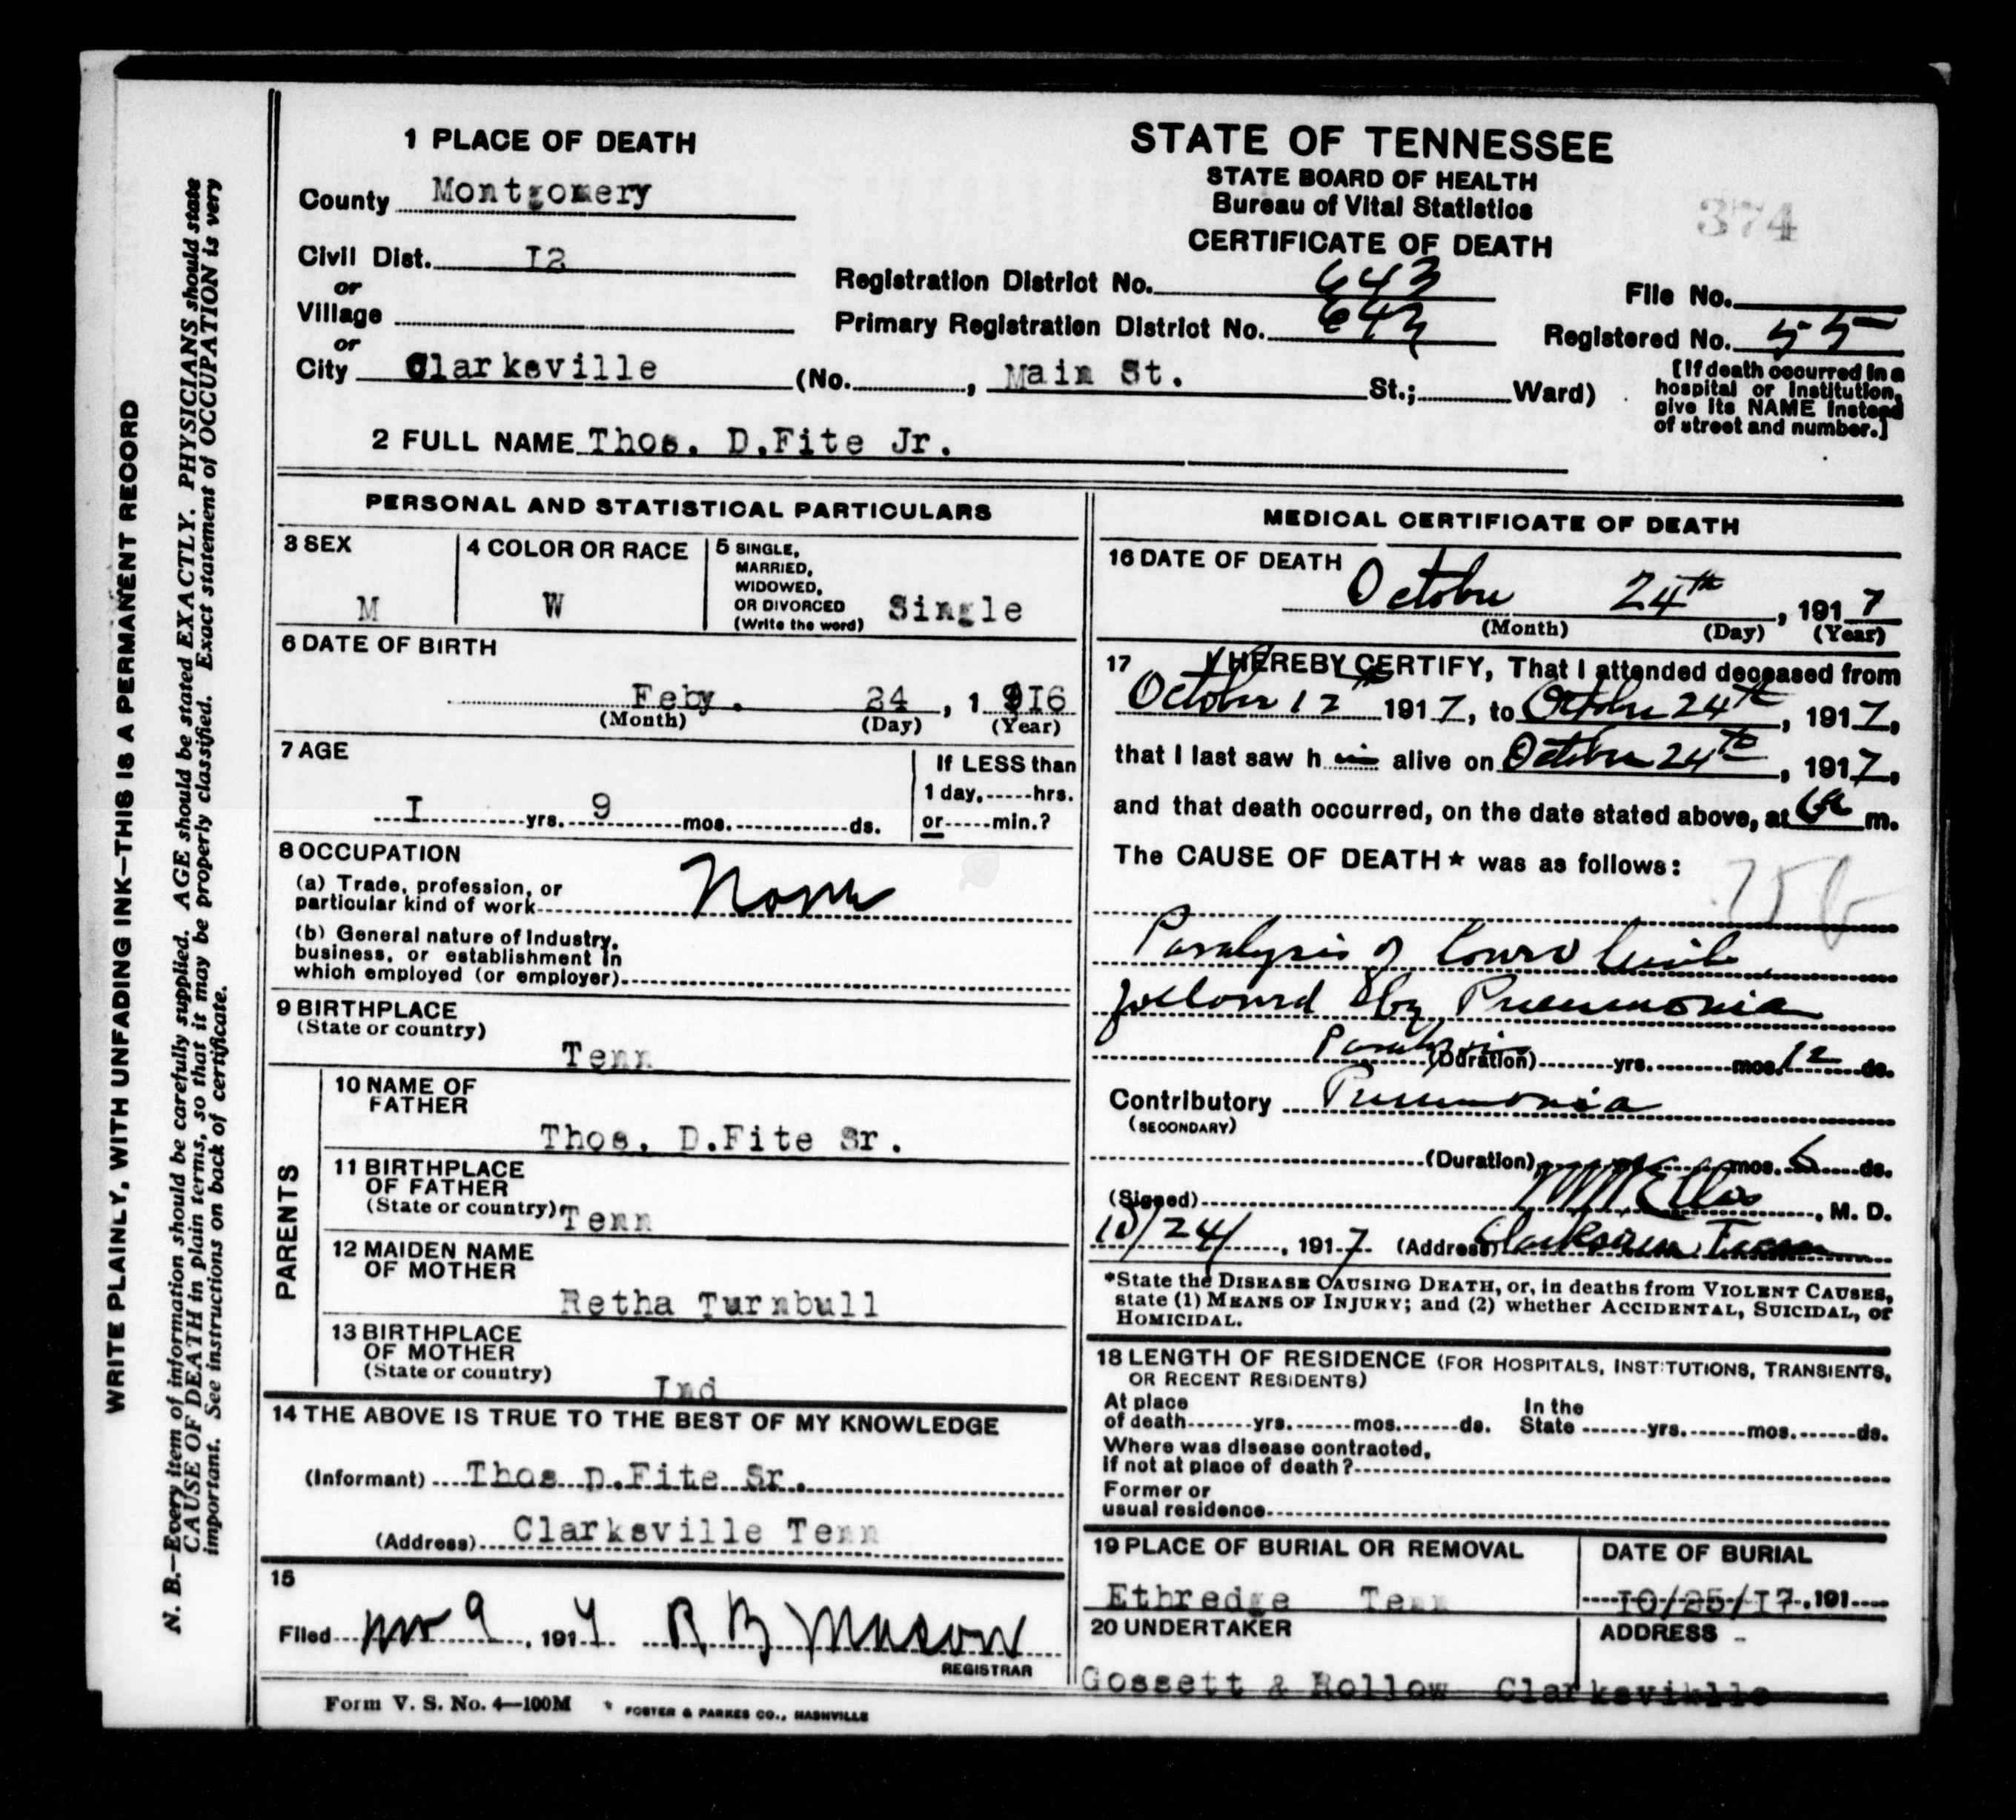 WRITE PLAINLY, WITH UNFADING INK—THIS IS A PERMANENT RECORD
N. B.—Every item of information should be carefully supplied. AGE should be stated EXACTLY. PHYSICIANS should state
CAUSE OF DEATH in plain terms, so that it may be properly classified. Exact statement of OCCUPATION is very
important. See instructions on back of certificate.
1 PLACE OF DEATH
County Montgomery
Civil Dist. I2
or
Village
or
City Clarksville (No. , Main St. St.; Ward)
STATE OF TENNESSEE
STATE BOARD OF HEALTH
Bureau of Vital Statistics
CERTIFICATE OF DEATH
374
Registration District No. 643
Primary Registration District No. 643
File No.
Registered No. 55
[If death occurred in a
hospital or institution,
give its NAME instead
of street and number.]
2 FULL NAME Thos. D.Fite Jr.
PERSONAL AND STATISTICAL PARTICULARS
3 SEX
M
4 COLOR OR RACE
W
5 SINGLE,
MARRIED,
WIDOWED,
OR DIVORCED
(Write the word) Single
6 DATE OF BIRTH
Feby. 24 , 1 9I6
(Month) (Day) (Year)
7 AGE
I yrs. 9 mos. ds.
If LESS than
1 day, hrs.
or min.?
8 OCCUPATION
(a) Trade, profession, or
particular kind of work None
(b) General nature of Industry,
business, or establishment in
which employed (or employer)
9 BIRTHPLACE
(State or country)
Tenn
PARENTS
10 NAME OF
FATHER
Thos. D.Fite Sr.
11 BIRTHPLACE
OF FATHER
(State or country) Tenn
12 MAIDEN NAME
OF MOTHER
Retha Turnbull
13 BIRTHPLACE
OF MOTHER
(State or country)
Ind
14 THE ABOVE IS TRUE TO THE BEST OF MY KNOWLEDGE
(Informant) Thos D.Fite Sr.
(Address) Clarksville Tenn
15
Filed Nov 9 , 1917 R B Mason
REGISTRAR
Form V. S. No. 4—100M
FOSTER & PARKES CO., NASHVILLE
MEDICAL CERTIFICATE OF DEATH
16 DATE OF DEATH
October 24th , 1917
(Month) (Day) (Year)
17 I HEREBY CERTIFY, That I attended deceased from
October 12th 1917, to October 24th, 1917,
that I last saw h im alive on October 24th, 1917,
and that death occurred, on the date stated above, at 6a m.
The CAUSE OF DEATH* was as follows:
Paralysis of lower limb
followed by Pneumonia
Paralysis (Duration) yrs. mos. 12 ds.
Contributory Pneumonia
(SECONDARY)
(Duration) mos. 6 ds.
(Signed) Ellis, M. D.
10/24/, 1917 (Address) Clarksville Tenn
*State the DISEASE CAUSING DEATH, or, in deaths from VIOLENT CAUSES,
state (1) MEANS OF INJURY; and (2) whether ACCIDENTAL, SUICIDAL, or
HOMICIDAL.
18 LENGTH OF RESIDENCE (FOR HOSPITALS, INSTITUTIONS, TRANSIENTS,
OR RECENT RESIDENTS)
At place
of death yrs. mos. ds.
In the
State yrs. mos. ds.
Where was disease contracted,
if not at place of death?
Former or
usual residence
19 PLACE OF BURIAL OR REMOVAL
Ethredge Tenn
DATE OF BURIAL
I0/25/I7 , 191
20 UNDERTAKER
ADDRESS
Gossett & Rollow Clarksville